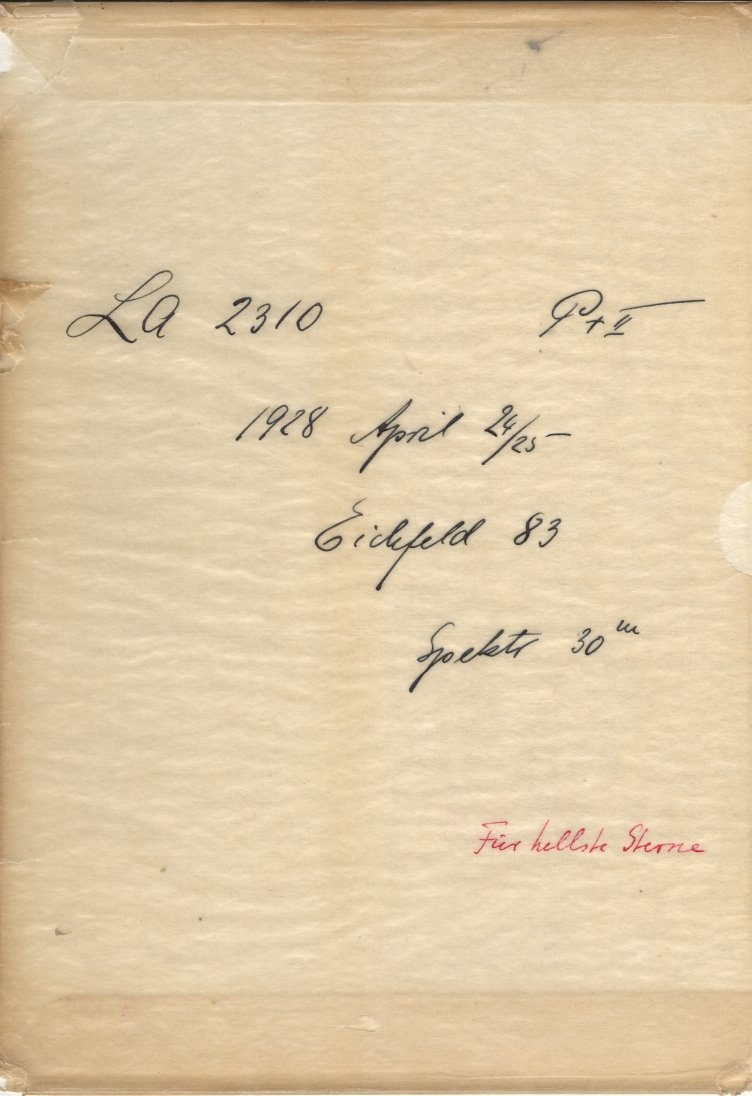 LA 2310 P+II
1928 April 24/25
Eichfeld 83
Spektr 30m
Für hellste Sterne